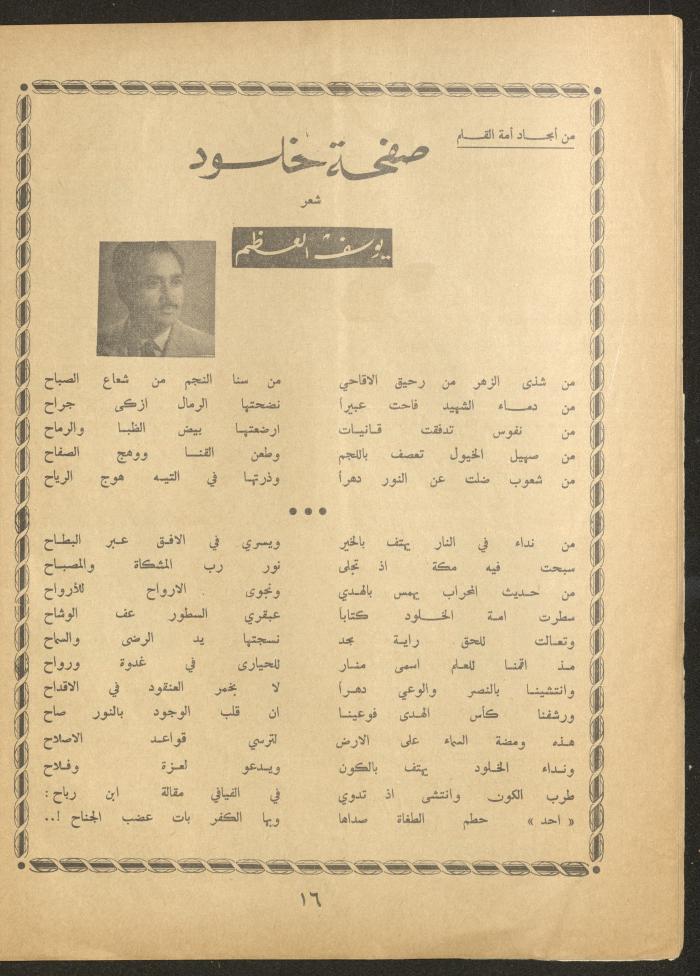 من أمجاد أمة القلم
صفحة خلود
شعر
يوسف العظم
من شذى الزهر من رحيق الاقاحي من سنا النجم من شعاع الصباح
من دماء الشهيد فاحت عبيراً نضحتها الرمال ازكى جراح
من نفوس تدفقت قانيات ارضعتها بيض الظبا والرماح
من صهيل الخيول تعصف باللجم وطعن القنا ووهج الصفاح
من شعوب ضلت عن النور دهراً وذرتها في التيه هوج الرياح
•••
من نداء في النار يهتف بالخير ويسري في الافق عبر البطاح
سبحت فيه مكة اذ تجلى نور رب المشكاة والمصباح
من حديث المحراب يهمس بالهدي ونجوى الارواح للأرواح
سطرت امة الخلود كتاباً عبقري السطور عف الوشاح
وتعالت للحق راية مجد نسجتها يد الرضى والسماح
مذ اقمنا للعلم اسمى منار للحيارى في غدوة ورواح
وانتشينا بالنصر والوعي دهراً لا بخمر العنقود في الاقداح
ورشفنا كأس الهدى فوعينا ان قلب الوجود بالنور صاح
هذه ومضة السماء على الارض لترسي قواعد الاصلاح
ونداء الخلود يهتف بالكون ويدعو لعزة وفلاح
طرب الكون وانتشى اذ تدوي في الفيافي مقالة ابن رباح :
« احد » حطم الطغاة صداها وبها الكفر بات عضب الجناح !..
١٦